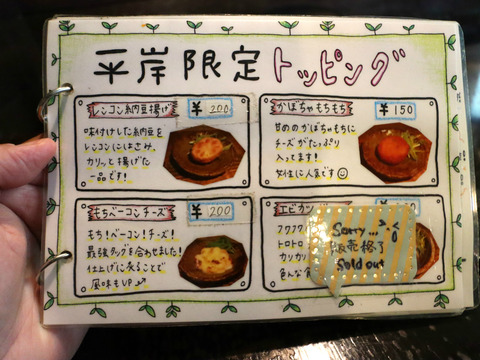 平岸限定トッピング
レンコン納豆揚げ
¥200
味付けした納豆を
レンコンにはさみ、
カリッと揚げた
一品です!
かぼちゃもちもち
¥150
甘めのかぼちゃもちに
チーズがたっぷり
入ってます!
女性に人気です
もちベーコンチーズ
¥200
もち!ベーコン!チーズ!
最強タッグを合わせました!
仕上げに炙ることで
風味もUP
エビカ
フワフワ
トロトロ
カリカリ
色んな食
Sorry...
販売終了
Sold out